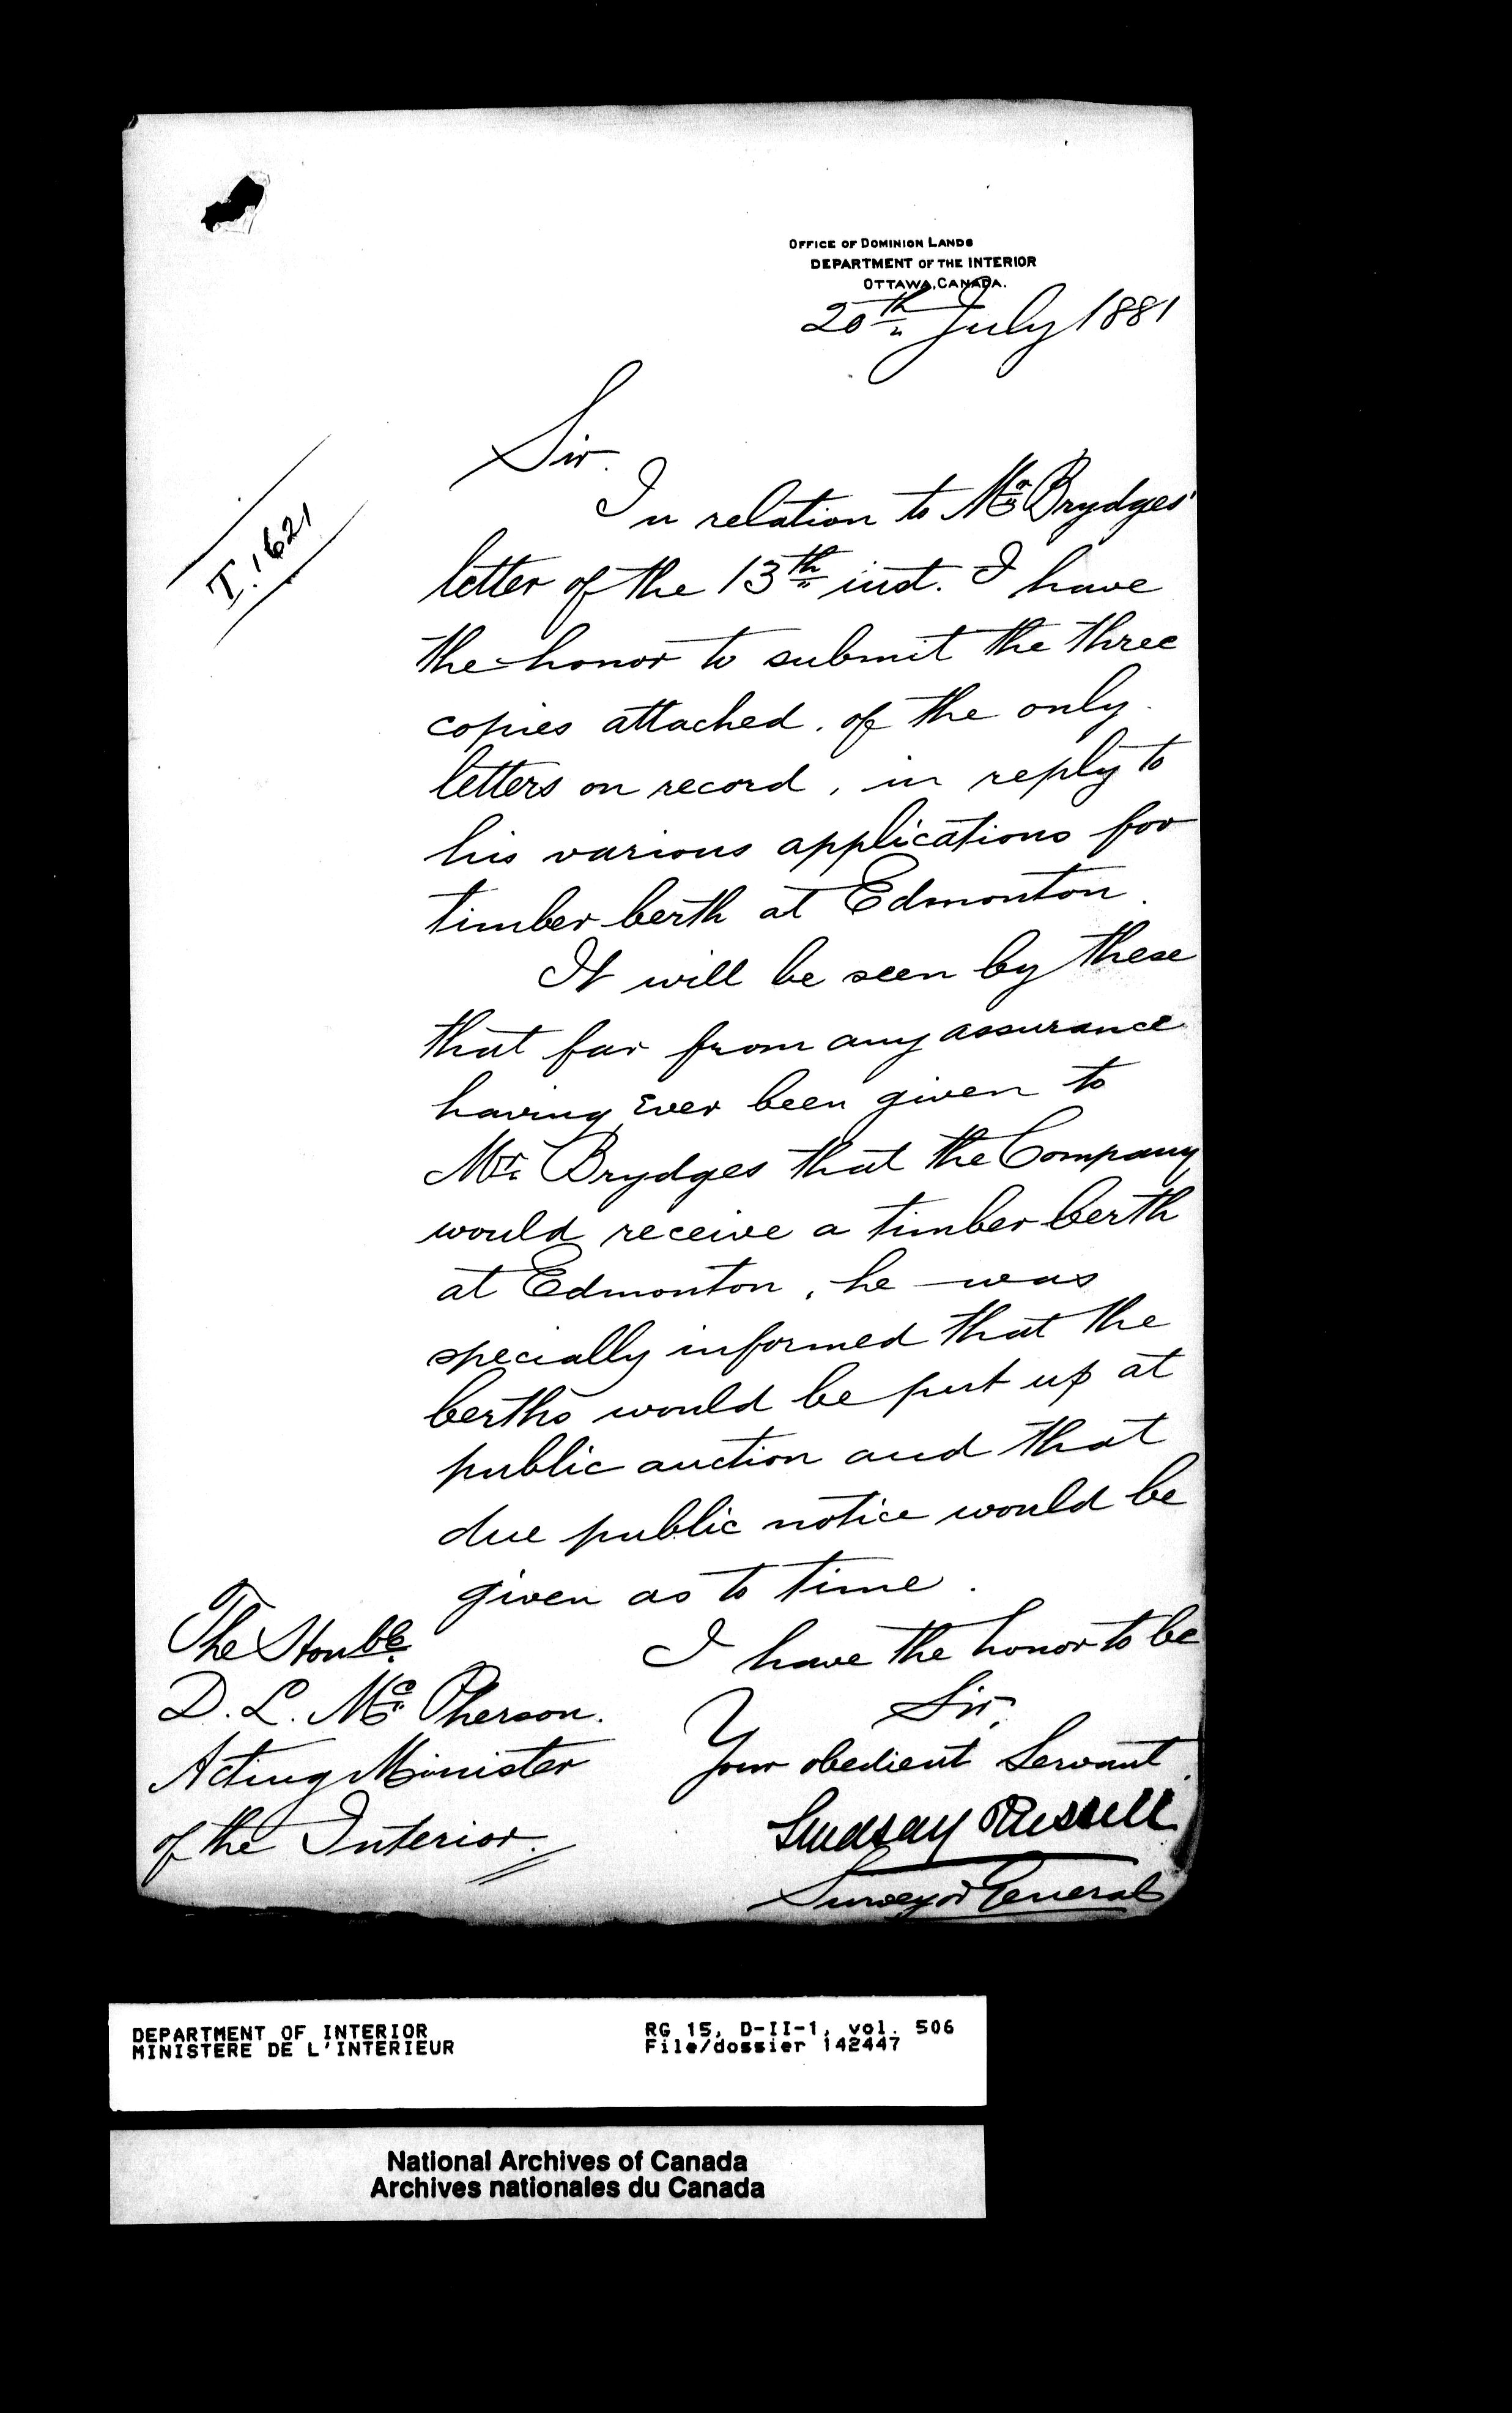 OFFICE OF DOMINION LANDS
DEPARTMENT OF THE INTERIOR
OTTAWA, CANADA.
20th July 1881
T. 1621
Sir.
In relation to Mr Brydges'
letter of the 13th inst. I have
the honor to submit the three
copies attached. of the only
letters on record, in reply to
his various applications for
timber berth at Edmonton.
It will be seen by these
that far from any assurance
having ever been given to
Mr. Brydges that the Company
would receive a timber berth
at Edmonton, he was
specially informed that the
berths would be put up at
public auction and that
due public notice would be
given as to time.
I have the honor to be
Sir,
Your obedient Servant
Lindsay Russell
Surveyor General
The Honble.
D. L. McPherson.
Acting Minister
of the Interior.
DEPARTMENT OF INTERIOR
MINISTERE DE L'INTERIEUR
RG 15, D-II-1, vol. 506
File/dossier 142447
National Archives of Canada
Archives nationales du Canada